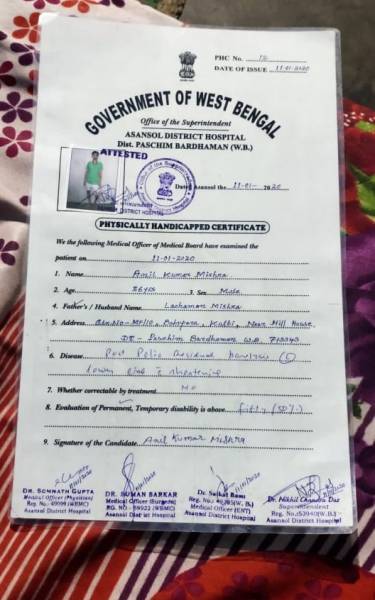 PHC No. 12
DATE OF ISSUE 11-01-2020
GOVERNMENT OF WEST BENGAL
Office of the Superintendent
ASANSOL DISTRICT HOSPITAL
Dist. PASCHIM BARDHAMAN (W.B.)
ATTESTED
Dated Asansol the 11-01- 2020
Superintendent
ASANSOL DISTRICT HOSPITAL
PHYSICALLY HANDICAPPED CERTIFICATE
We the following Medical Officer of Medical Board have examined the
patient on 11-01-2020
1. Name Anil Kumar Mishra
2. Age. 26 yrs 3. Sex Male
4. Father's / Husband Name Lachaman Mishra
5. Address Near Mill House
Paschim Bardhaman W.B. 713343
6. Disease Post Polio Residual
Lower limb shortening
7. Whether correctable by treatment. NO
8. Evaluation of Permanent, Temporary disability is above. fifty (50%)
9. Signature of the Candidate. Anil Kumar Mishra
DR. SOMNATH GUPTA
Medical Officer (Physician)
(WBMC)
Asansol District Hospital
DR. SUMAN SARKAR
Medical Officer (Surgery)
RG. NO - 59922 (WBMC)
Asansol District Hospital
Dr. Saikat Basu
Medical Officer (ENT)
Asansol District Hospital
Dr. Nikhil Chandra Das
Superintendent
Asansol District Hospital